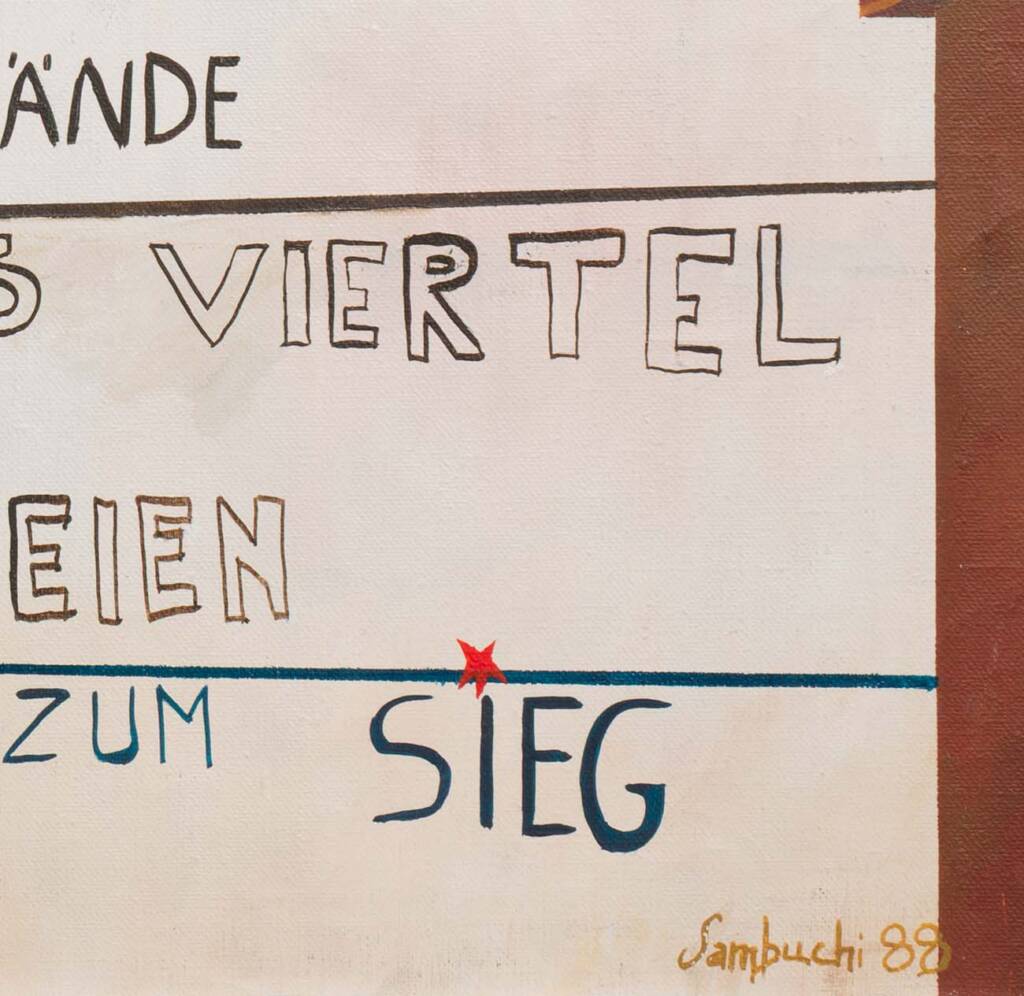 ÄNDE
S VIERTEL
EIEN
ZUM SIEG
Sambuchi 88